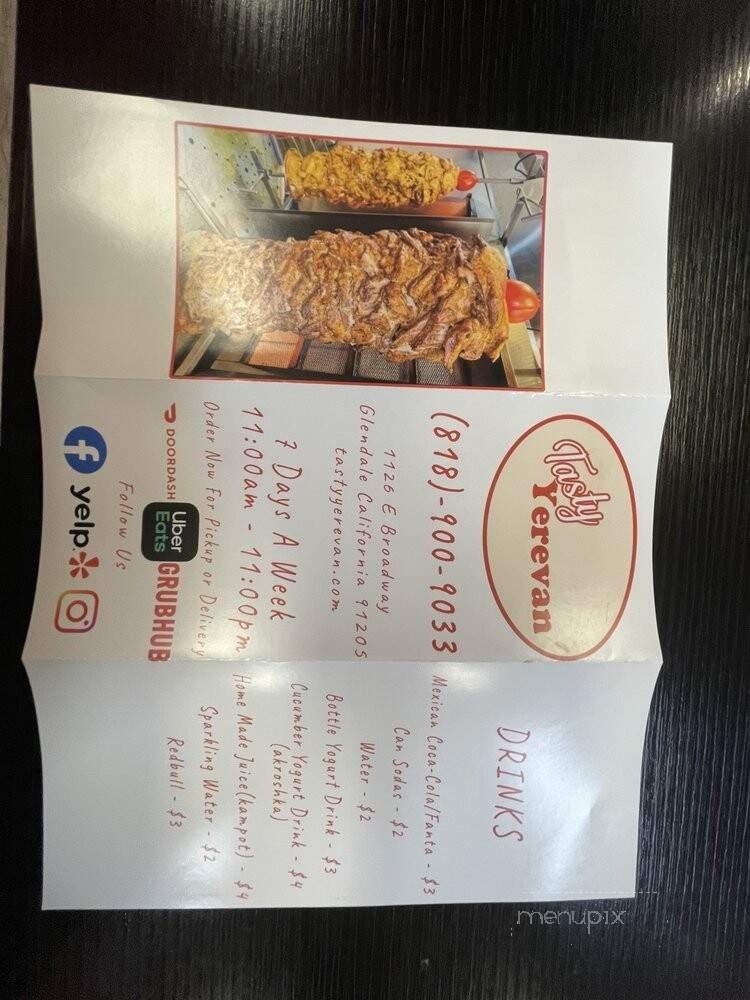 Tasty
Yerevan
(818)-900-9033
1126 E Broadway
Glendale California 91205
tastyyerevan.com
7 Days A Week
11:00am - 11:00pm
Order Now For Pickup or Delivery
DOORDASH
Uber
Eats
GRUBHUB
Follow Us
f
yelp
DRINKS
Mexican Coca-Cola/Fanta - $3
Can Sodas - $2
Water - $2
Bottle Yogurt Drink - $3
Cucumber Yogurt Drink - $4
(akroshka)
Home Made Juice(kampot) - $4
Sparkling Water - $2
Redbull - $3
menupix